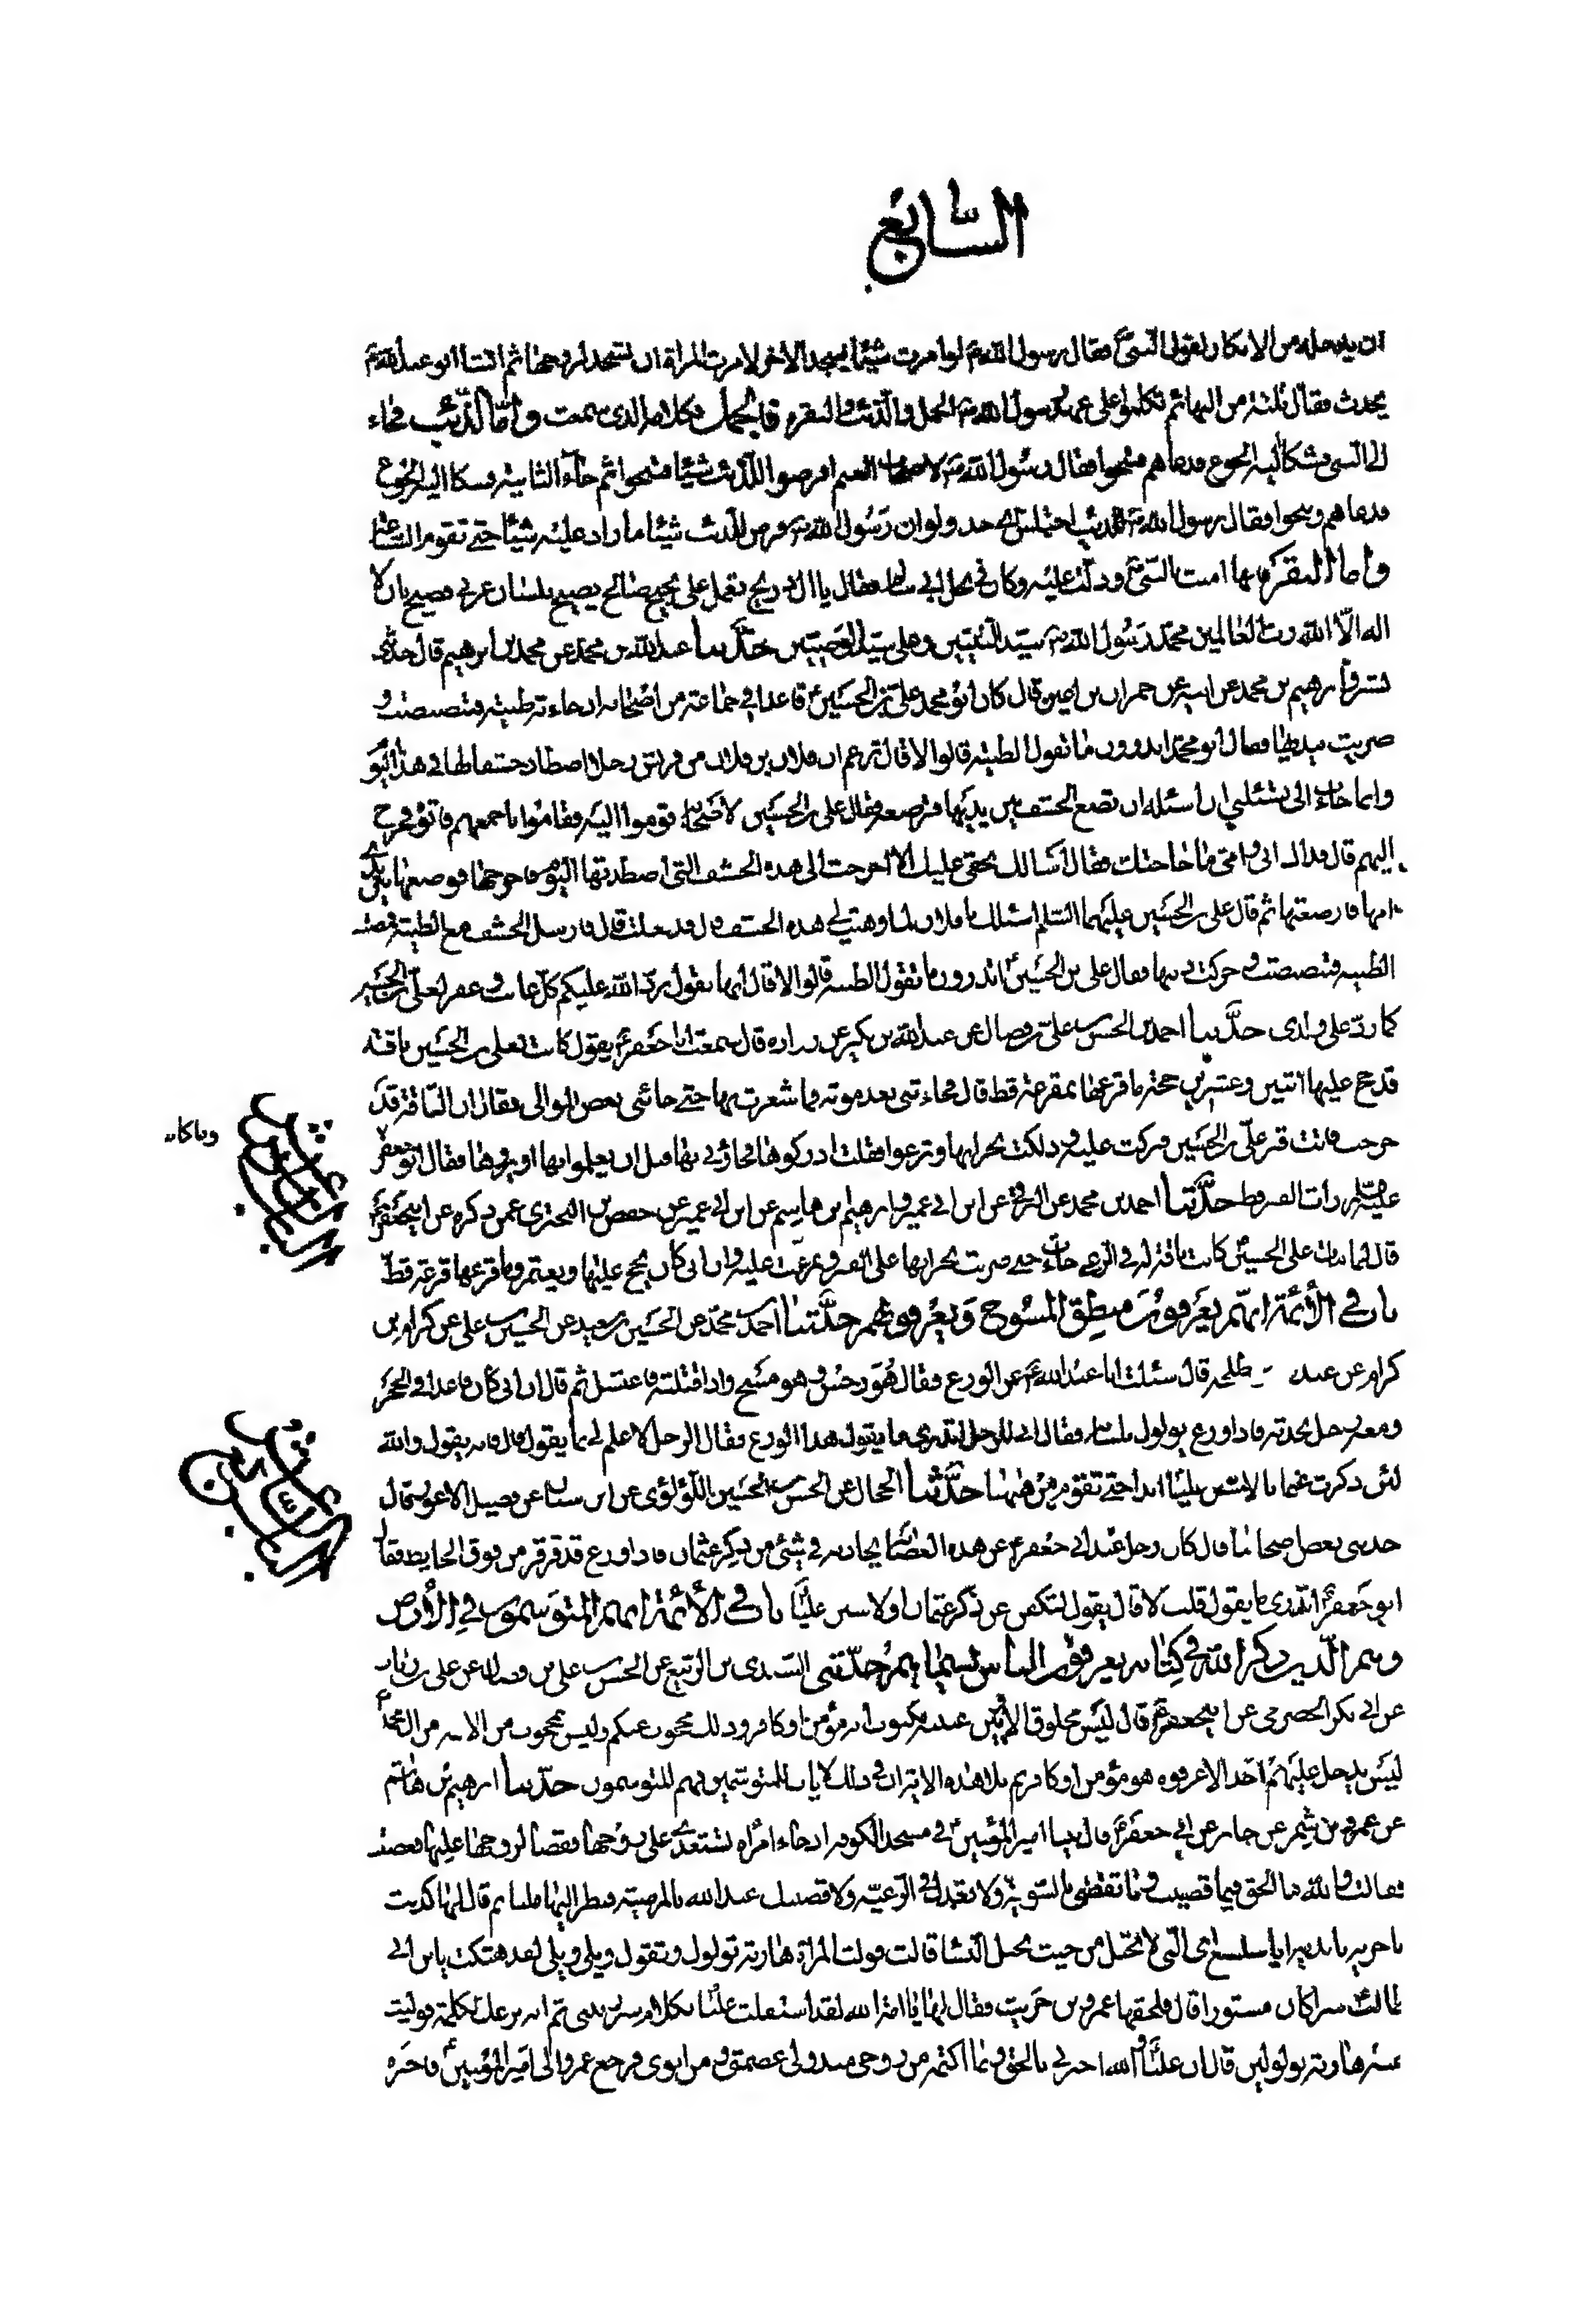 السابع
ان يدخله من الانكار لقول النبي فقال رسول الله لو امرت شيئا يسجد لاخر لامرت المراة ان تسجد لزوجها ثم انشا ابو عبد الله
يحدث فقال ثلثة من البهائم تكلموا على عهد رسول الله الجمل والذئب والبقرة فاما الجمل فكلامه الذى سمعت واما الذئب فجاء
الى النبى فشكا اليه الجوع فدعاهم فشحوا فقال رسول الله لاصحاب الغنم افرضوا للذئب شيئا فشحوا ثم جاء الثانية فشكا اليه الجوع
فدعاهم وشحوا فقال رسول الله للذئب اختلس اى خذ ولو ان رسول الله فرض للذئب شيئا ما زاد عليه شيئا حتى تقوم الساعة
واما البقرة فانها امنت بالنبى ودلت عليه وكان فى نخل ابى سالم فقال يا آل ذريح تعمل على نجيح صائح يصيح بلسان عربى فصيح بان لا
اله الا الله رب العالمين محمد رسول الله سيد النبيين وعلى سيد الوصيين حدثنا عبد الله بن محمد عن محمد بن ابرهيم قال حدثنى
بشر وابرهيم بن محمد عن ابيه عن حمران بن اعين قال كان ابو محمد على بن الحسين قاعدا فى جماعة من اصحابه اذ جاءته ظبية فتبصبصت و
ضربت بيديها فقال ابو محمد اتدرون ما تقول الظبية قالوا لا قال تزعم ان فلان بن فلان من قريش رجلا اصطاد خشفا لها فى هذا اليوم
وانما جاءت الى تسئلنى ان اسئله ان تضع الخشف بين يديها فترضعه فقال على بن الحسين لاصحابه قوموا اليه فقاموا باجمعهم فاتوه فخرج
اليهم قال فداك ابى وامى ما حاجتك فقال اسالك بحقى عليك الا اخرجت الى هذه الخشف التى اصطدتها اليوم فاخرجها فوضعها بين يدى
امها فارضعتها ثم قال على بن الحسين عليهما السلم اسئلك يا فلان لما وهبت لى هذه الخشف قال قد فعلت قال فارسل الخشف مع الظبية فمضت
الظبية فتبصبصت وحركت ذنبها فقال على بن الحسين اتدرون ما تقول الظبية قالوا لا قال انها تقول رد الله عليكم كل غائب وغفر لعلى بن الحسين
كما رد على ولدى حدثنا احمد بن الحسن بن على بن فضال عن عبد الله بن بكير عن زراره قال سمعت ابا جعفر يقول كانت لعلى بن الحسين ناقة
قد حج عليها اثنتين وعشرين حجة ما قرعها بمقرعة قط قال فجاءتنى بعد موته وما شعرت بها حتى جائنى بعض الموالى فقال ان الناقة قد
خرجت فاتت قبر على بن الحسين فبركت عليه ودلكت بجرانها وترغوا فقلت ادركوها فجاؤنى بها قبل ان يعلموا بها او يروها فقال ابو جعفر
وما كانت
عليه رات القبر قط حدثنا احمد بن محمد عن البرقى عن ابن ابى عمير وابرهيم بن هاشم عن ابن ابى عمير عن حفص بن البخترى عمن ذكره عن ابيجعفر
قال لما مات على الحسين كانت ناقة له فى الرعى جاءت حتى ضربت بجرانها على القبر وتمرغت عليه وان ابى كان يحج عليها ويعتمر وما قرعها قرعة قط
باب فى الأئمة انهم يعرفون منطق المسوخ ويعرفونهم حدثنا احمد بن محمد عن الحسين بن سعيد عن الحسين بن على عن كرام بن
كرام عن عبد بن طلحه قال سئلت ابا عبد الله عن الوزغ فقال هو رجس وهو مسخ واذا قتلته فاغتسل ثم قال ان ابى كان قاعدا فى الحجر
ومعه رجل يحدثه فاذا وزغ يولول بلسانه فقال ابى للرجل اتدرى ما يقول هذا الوزغ فقال الرجل لا علم لى بما يقول قال فانه يقول والله
لئن ذكرت عثمان لاسبن عليا ابدا حتى تقوم من ههنا حدثنا الحجال عن الحسن بن الحسين اللؤلؤى عن ابن سنان عن فضيل الاعور قال
حدثنى بعض اصحابنا قال كان رجل عند ابى جعفر عن هذه العصابة يحادثه فى شئ من ذكر عثمان فاذا وزغ قد قرقر من فوق الحايط فقال
ابو جعفر اتدرى ما يقول قلت لا قال يقول لتكفن عن ذكر عثمان او لاسبن عليا باب فى الأئمة انهم المتوسمون فى الأرض
وهم الذين ذكر الله فى كتابه يعرفون الناس بسيماهم حدثنى السندى بن الربيع عن الحسن بن على بن فضال عن على بن رئاب
عن ابى بكر الحضرمى عن ابيجعفر قال ليس مخلوق الا وبين عينيه مكتوب انه مؤمن او كافر وذلك محجوب عنكم وليس بمحجوب من الائمة من ال محمد
ليس يدخل عليهم احد الا عرفوه هو مؤمن او كافر ثم تلا هذه الاية ان فى ذلك لايات للمتوسمين فهم المتوسمون حدثنا ابرهيم بن هاشم
عن عمرو بن شمر عن جابر عن ابى جعفر قال بينا امير المؤمنين فى مسجد الكوفة اذ جاءت امراة تستعدى على زوجها فقضا لزوجها عليها فغضبت
فقالت والله ما الحق فيما قضيت وما تقضى بالسوية ولا تعدل فى الرعية ولا قضيتك عند الله بالمرضية فنظر اليها مليا ثم قال لها كذبت
يا جرية يا بذية ايا سلسع اى التى لا تحبل من حيث تحبل النسا قالت فولت المراة هاربة تولول وتقول ويلى ويلى لقد هتكت يا بن ابى
طالب سرا كان مستورا قال فلحقها عمرو بن حريث فقال لها يا امة الله لقد استقبلت عليا بكلام سررتنى ثم انه نزعك بكلمة فوليت
عنه هاربة تولولين قال ان عليا والله اخبرنى بالحق وبما اكتمه من زوجى منذ ولى عصمتى ومن ابوى فرجع عمرو الى امير المؤمنين فاخبره